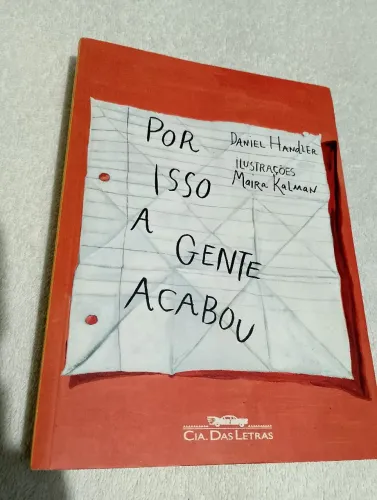 POR
ISSO
A
GENTE
ACABOU
DANIEL HANDLER
ILUSTRAÇÕES
MAIRA KALMAN
CIA. DAS LETRAS